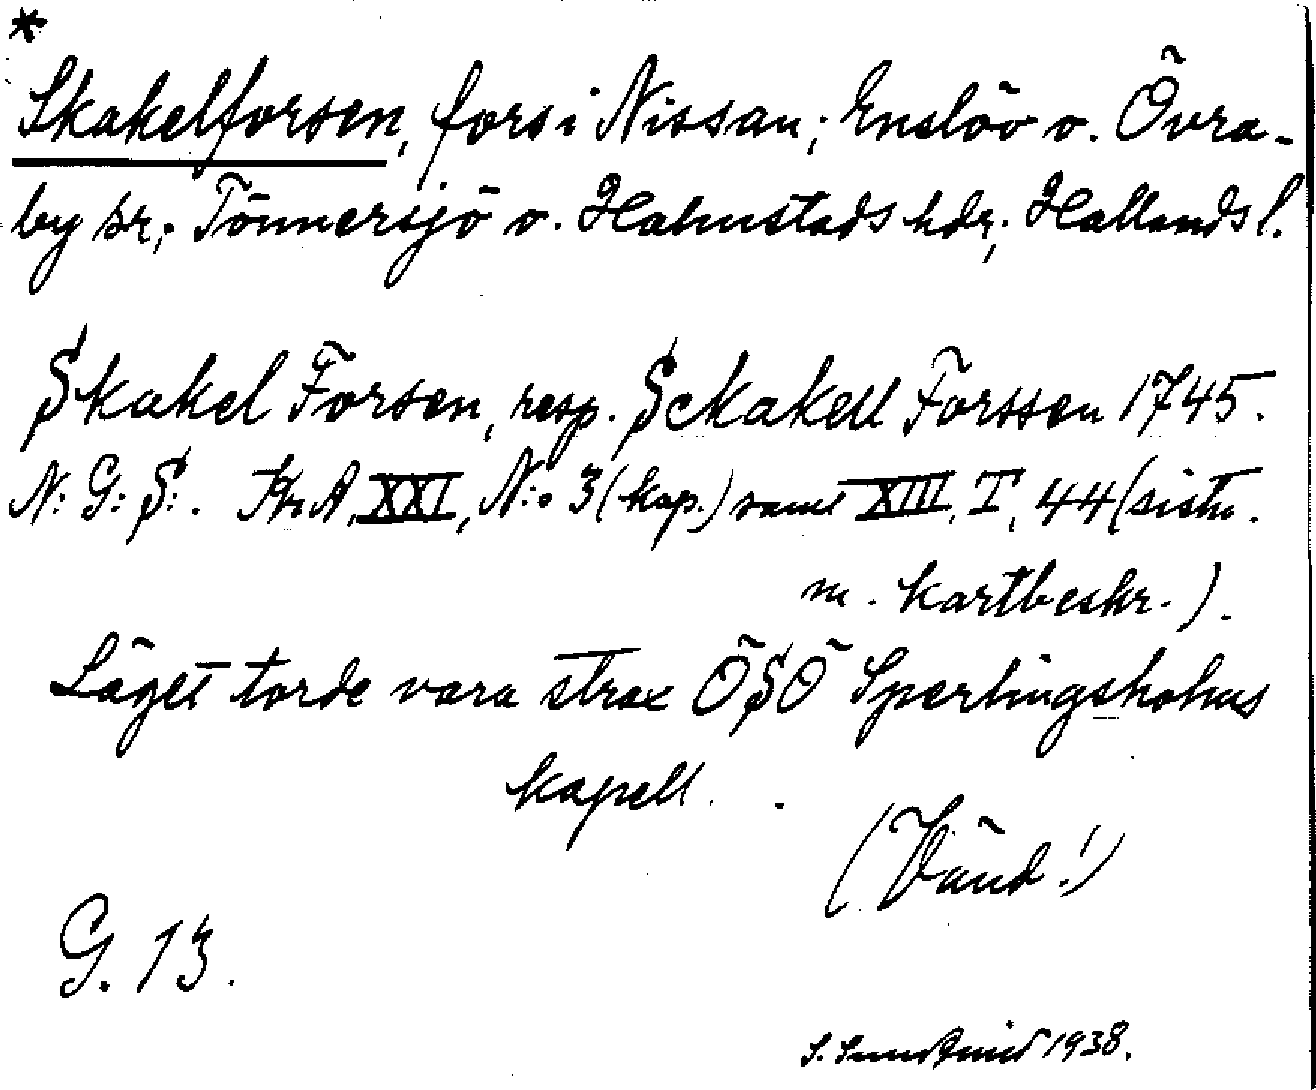 *
Skakelforsen, fors i Nissan; Enslöv o. Övra-
by sr; Tönnersjö o. Halmstads hdr; Hallands l.
Skakel Forsen, resp. Sckakell Forssen 1745.
N: G: S: . Kr. A. XXI, N:o 3 (kop.) samt XIII, I, 44 (sistn.
m. kartbeskr.).
Läget torde vara strax ÖSÖ Sperlingsholms
kapell.
(Vänd!)
G. 13.
S. 1938.